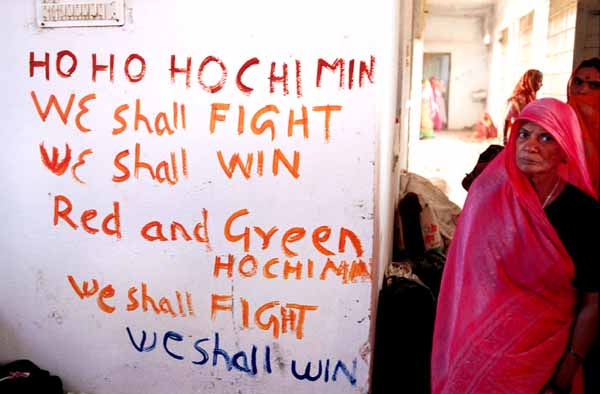 HO HO HO CHI MIN
WE shall FIGHT
WE shall WIN
Red and Green
HO CHI MIN
we shall FIGHT
we shall WIN